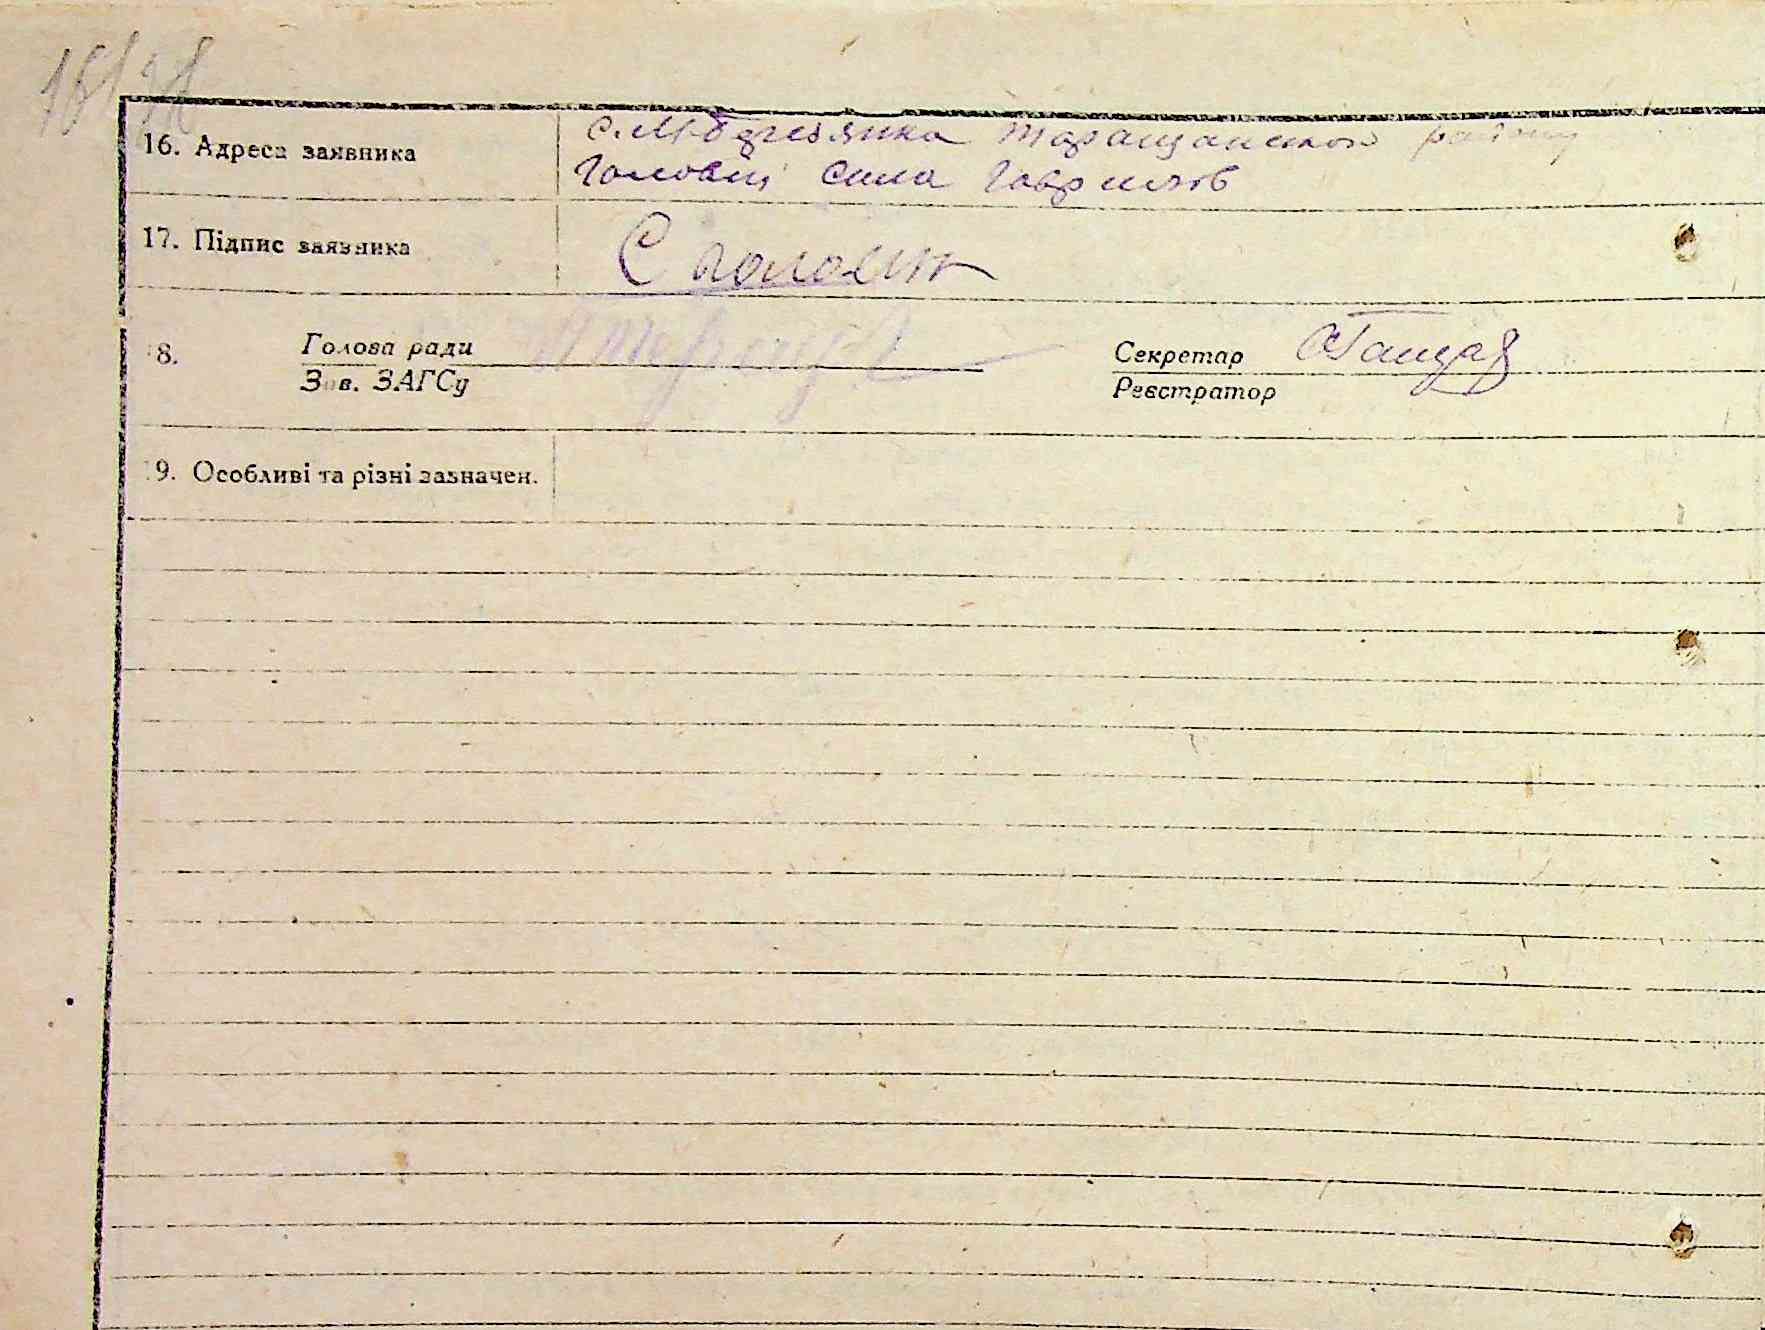 16. Адреса заявника
с. М-Березянка Таращанського району
Головень Сила Гаврилов
17. Підпис заявника
С Головен
8. Голова ради
Зав. ЗАГСу
Секретар
Реєстратор
9. Особливі та різні зазначен.